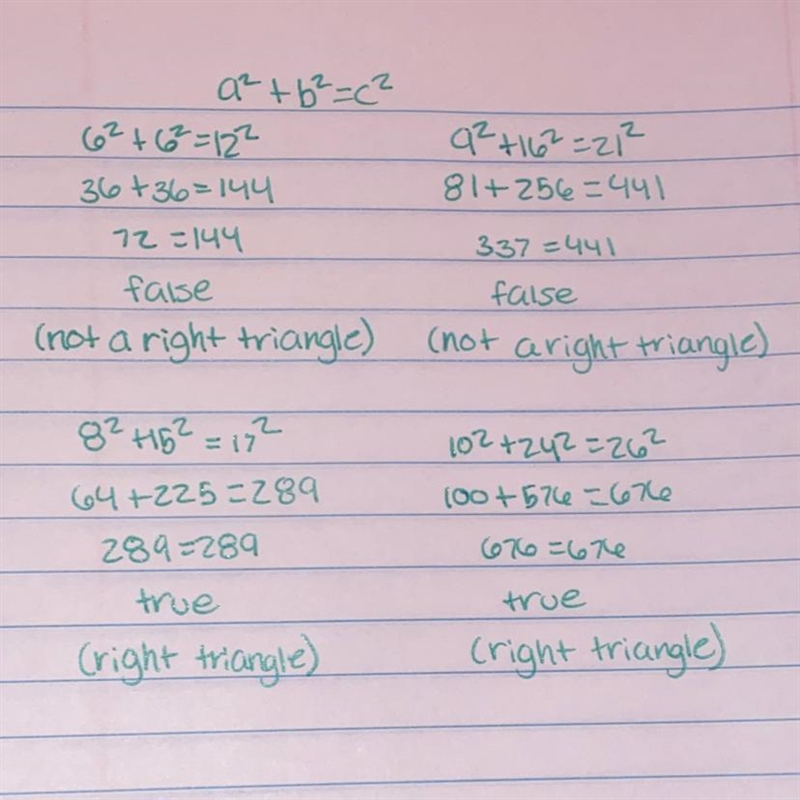 a²+b²=c²
6²+6²=12²
36+36=144
72=144
false
(not a right triangle)
9²+16²=21²
81+256=441
337=441
false
(not a right triangle)
8²+15²=17²
64+225=289
289=289
true
(right triangle)
10²+24²=26²
100+576=676
676=676
true
(right triangle)